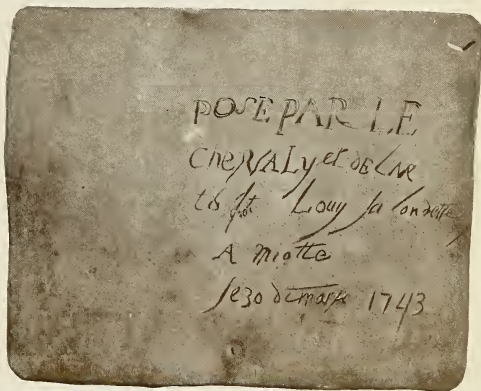 POSE PAR LE
CheVALyet DE LAR
Louy la londette
A miotte
le 30 de mars 1743